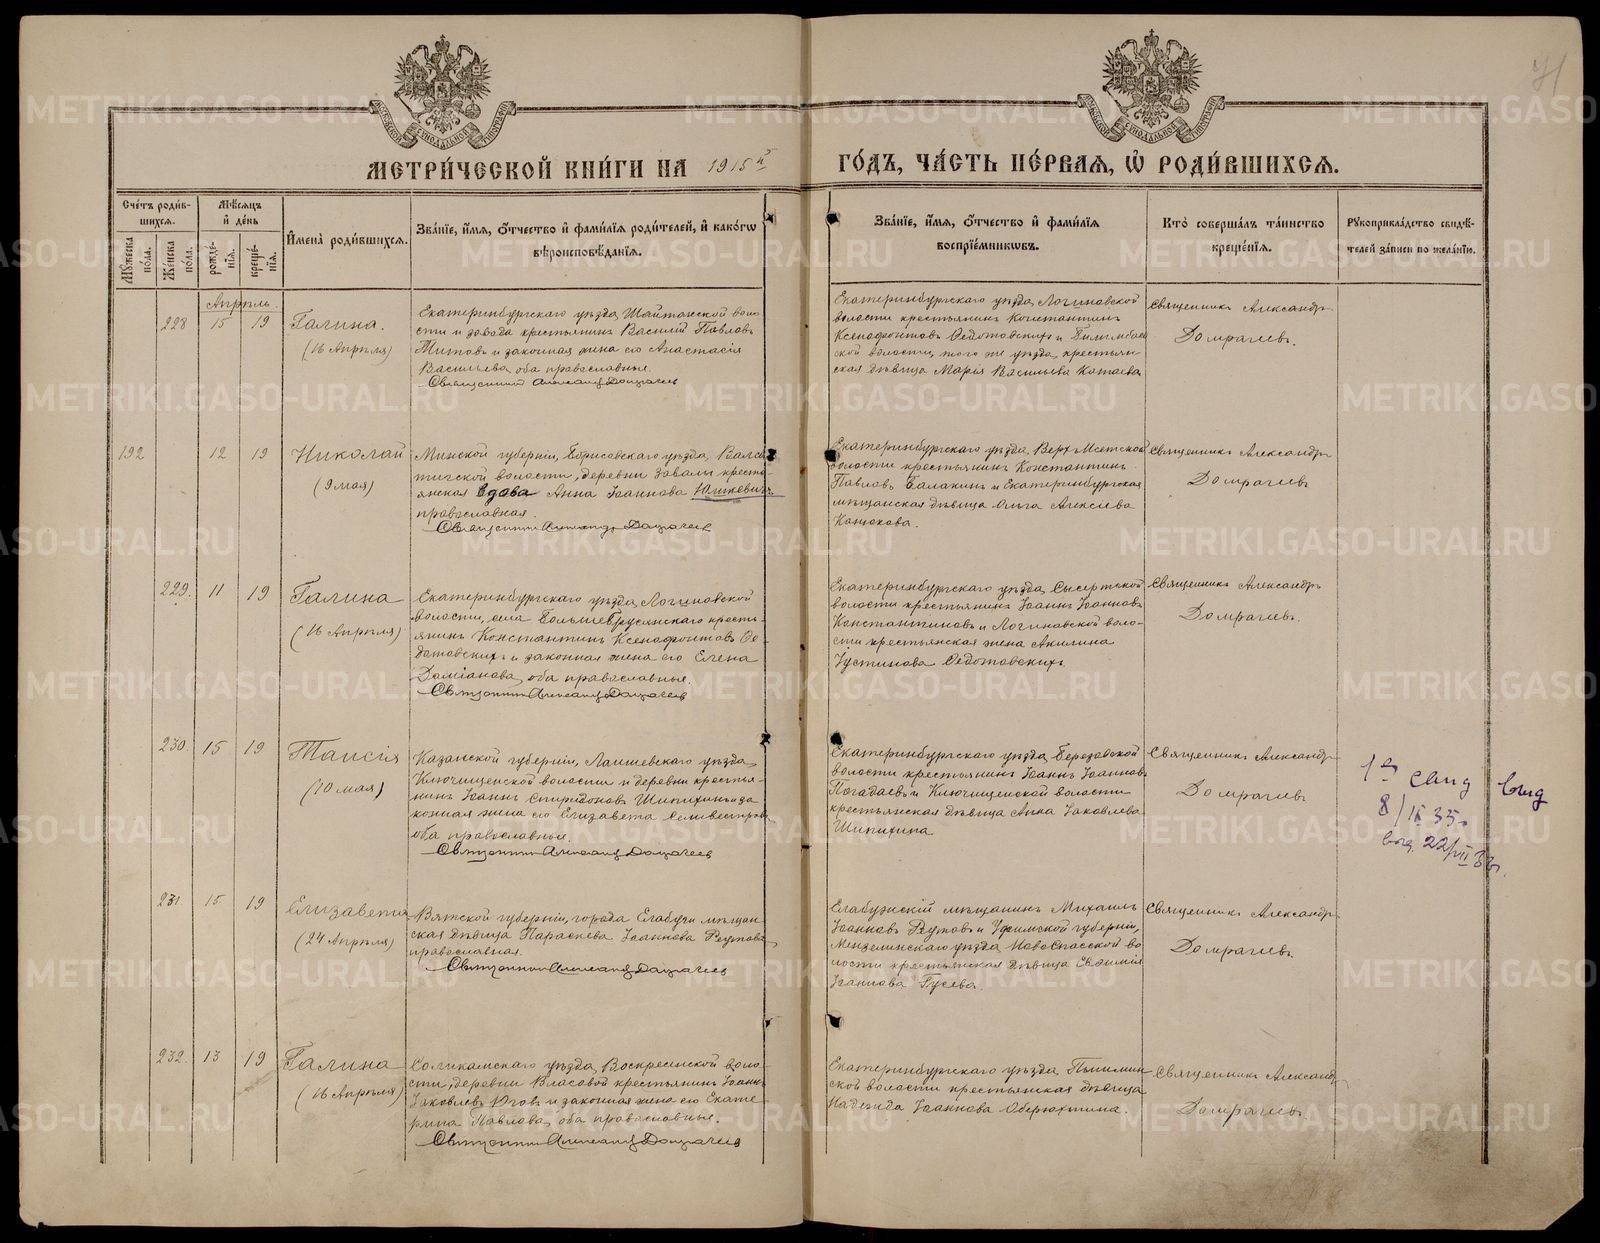 МЕТРИ́ЧЕСКОЙ КНИ́ГИ НА 1915й ГО́ДЪ, ЧА́СТЬ ПЕ́РВАЯ, Ѡ РОДИ́ВШИХСЯ.
Сче́тъ роди́в-
шихся.
Мѣ́сяцъ
и҆ де́нь
Мꙋ́жеска по́ла.
Же́нска по́ла.
рожде́-
нїя.
креще́-
нїя.
И҆мена̀ роди́вшихся.
Зва́нїе, и҆́мя, ѻ҆́тчество и҆ фами́лїя роди́телей, и҆ како́гѡ
вѣроисповѣ́данїя.
Зва́нїе, и҆́мя, ѻ҆́тчество и҆ фами́лїя
воспрїе́мникѡвъ.
Кто̀ соверша́лъ та́инство
креще́нїя.
Рꙋкоприкла́дство свидѣ́-
телей за́писи по жела́нїю.
Апрѣль.
228 15 19 Галина.
(16 Апрѣля)
Екатеринбургскаго уѣзда, Шайтанской воло-
сти и завода крестьянинъ Василій Павловъ
Титовъ и законная жена его Анастасія
Васильева, оба православные.
Священникъ Александръ Домрачевъ
Екатеринбургскаго уѣзда, Логиновской
волости крестьянинъ Константинъ
Ксенофонтовъ Ѳедотовскихъ и Билимбаев-
ской волости, того же уѣзда, крестьян-
ская дѣвица Марія Васильева Катаева
Священникъ Александръ
Домрачевъ.
192 12 19 Николай
(9 мая)
Минской губерніи, Борисовскаго уѣзда,
волости, деревни Завалы кресть-
янская вдова Анна Іоаннова Юшкевичъ,
православная.
Священникъ Александръ Домрачевъ
Екатеринбургскаго уѣзда, Верх-Исетской
волости крестьянинъ Константинъ
Павловъ Балакинъ и Екатеринбургская
мѣщанская дѣвица Ольга Алексѣева
Канюкова.
Священникъ Александръ
Домрачевъ
229. 11 19 Галина
(16 Апрѣля)
Екатеринбургскаго уѣзда, Логиновской
волости, села Большебрусянскаго кресть-
янинъ Константинъ Ксенофонтовъ Ѳе-
дотовскихъ и законная жена его Елена
Даміанова, оба православные.
Священникъ Александръ Домрачевъ
Екатеринбургскаго уѣзда, Сысертской
волости крестьянинъ Іоаннъ Іоанновъ
Константиновъ и Логиновской воло-
сти крестьянская жена Акилина
Іустинова Ѳедотовскихъ
Священникъ Александръ
Домрачевъ.
230. 15 19 Таисія
(10 мая)
Казанской губерніи, Лаишевскаго уѣзда,
Ключищенской волости и деревни крестья-
нинъ Іоаннъ Спиридоновъ Шипихинъ и за-
конная жена его Елизавета Селивестрова,
оба православные.
Священникъ Александръ Домрачевъ
Екатеринбургскаго уѣзда, Березовской
волости крестьянинъ Іоаннъ Іоанновъ
Погадаевъ и Ключищенской волости
крестьянская дѣвица Анна Іаковлева
Шипихина
Священникъ Александръ
Домрачевъ
8/IX 35
выд. 22/VII
231 15 19 Елизавета
(24 Апрѣля)
Вятской губерніи, города Елабуги мѣщан-
ская дѣвица Параскева Іоаннова Реутова,
православная.
Священникъ Александръ Домрачевъ
Елабужскій мѣщанинъ Михаилъ
Іоанновъ Реутовъ и Уфимской губерніи,
Мензелинскаго уѣзда Ново-Спасской во-
лости крестьянская дѣвица Евѳимія
Іоаннова Гусева.
Священникъ Александръ
Домрачевъ
232. 13 19 Галина
(16 Апрѣля)
Соликамскаго уѣзда, Воскресенской воло-
сти, деревни Власовой крестьянинъ Іоаннъ
Іаковлевъ Юговъ и законная жена его Екате-
рина Павлова, оба православные.
Священникъ Александръ Домрачевъ
Екатеринбургскаго уѣзда, Пышмин-
ской волости крестьянская дѣвица
Надежда Іоаннова Оберюхтина.
Священникъ Александръ
Домрачевъ
METRIKI.GASO-URAL.RU